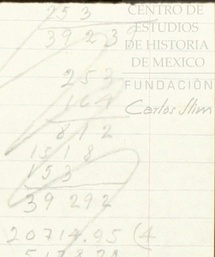 253
CENTRO DE
ESTUDIOS
3923
DE HISTORIA
DE MEXICO
FUNDACIÓN
253
Carlos Slim
164
812
1518
153
39292
20714.95 (4